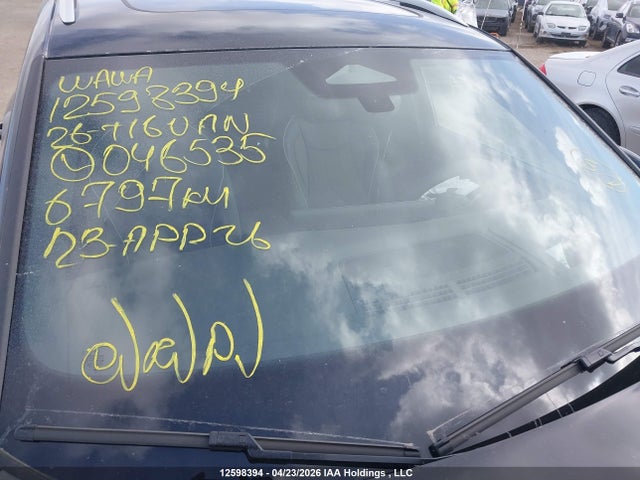 WAWA
12598394
26 TIGUAN
046535
6797KM
23-APR 26
12598394 - 04/23/2026 IAA Holdings , LLC